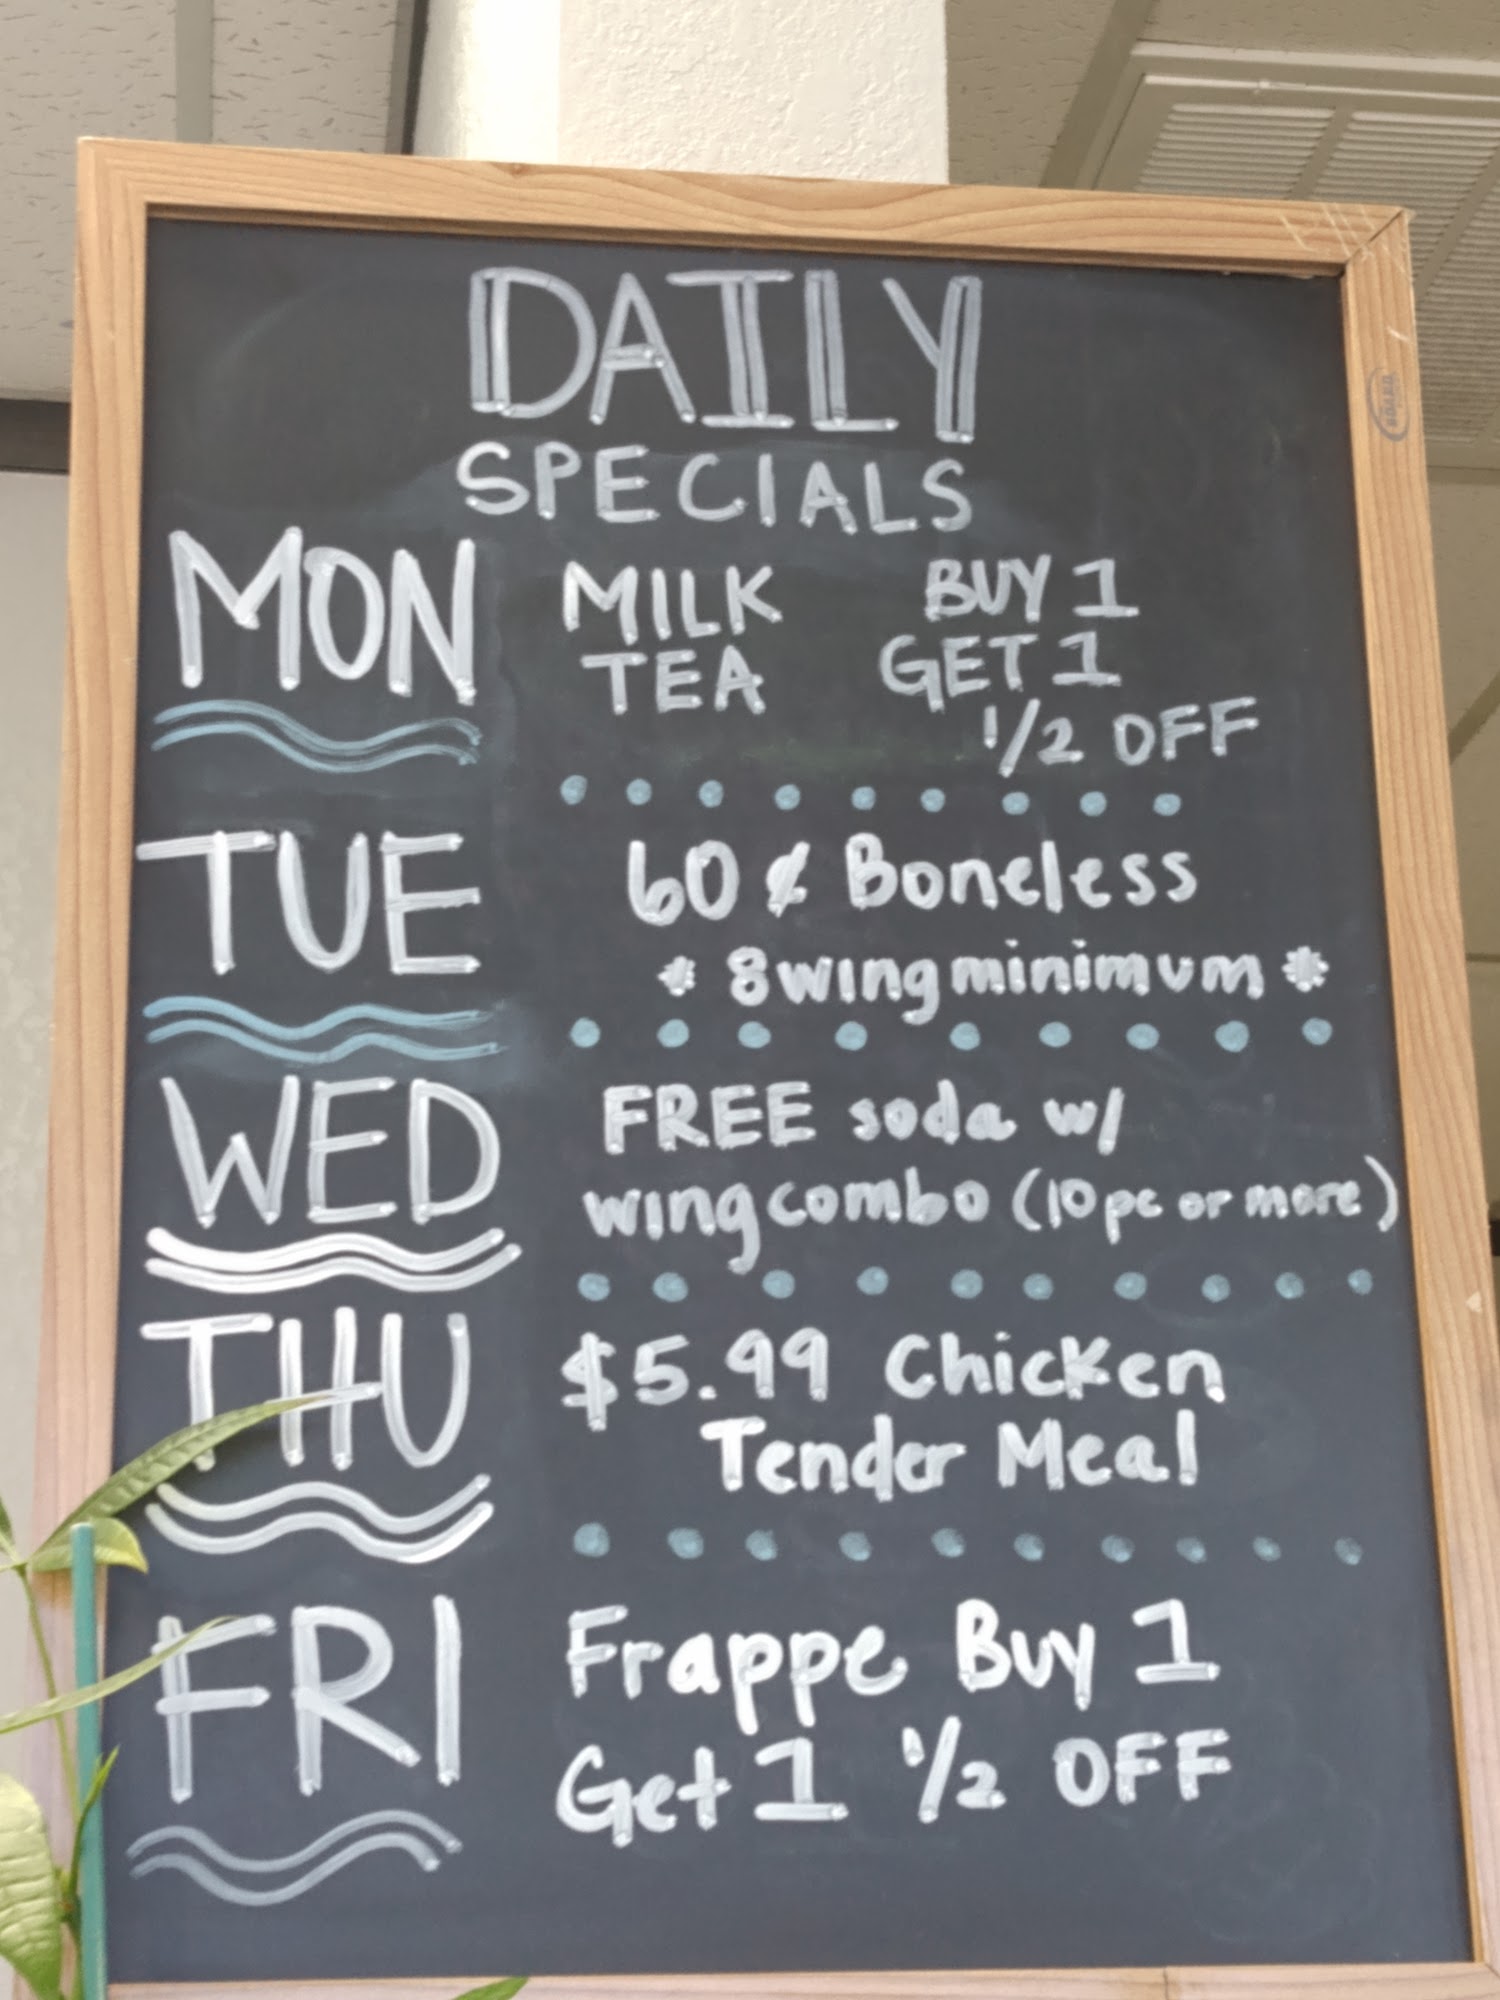 DAILY
SPECIALS
MON
MILK BUY 1
TEA GET 1
1/2 OFF
TUE
60 ¢ Boneless
* 8 wing minimum *
WED
FREE soda w/
wing combo (10 pc or more)
THU
$5.99 Chicken
Tender Meal
FRI
Frappe Buy 1
Get 1 1/2 OFF